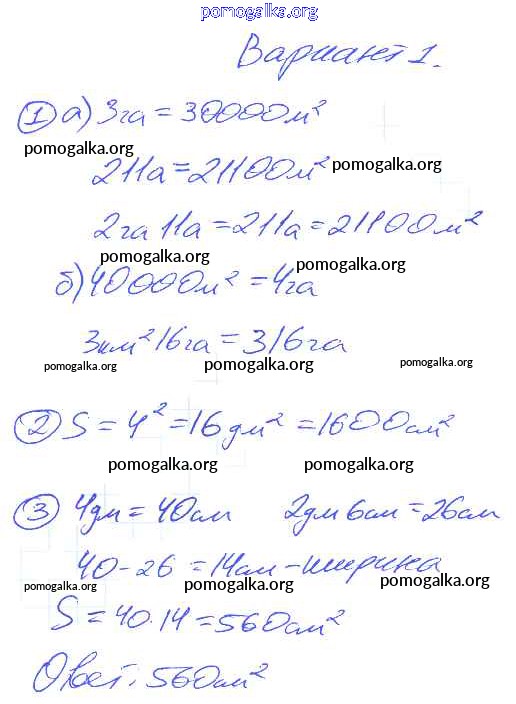 pomogalka.org
Вариант 1.
1 а) 3га = 30000м²
pomogalka.org
211а = 21100м² pomogalka.org
2га 11а = 211а = 21100м²
pomogalka.org pomogalka.org
б) 40000м² = 4га
3км² 16га = 316га
pomogalka.org pomogalka.org pomogalka.org
2 S = 4² = 16дм² = 1600см²
pomogalka.org pomogalka.org
3 4дм = 40см 2дм 6см = 26см
40 - 26 = 14см - ширина
pomogalka.org pomogalka.org pomogalka.org
S = 40·14 = 560см²
Ответ: 560см²